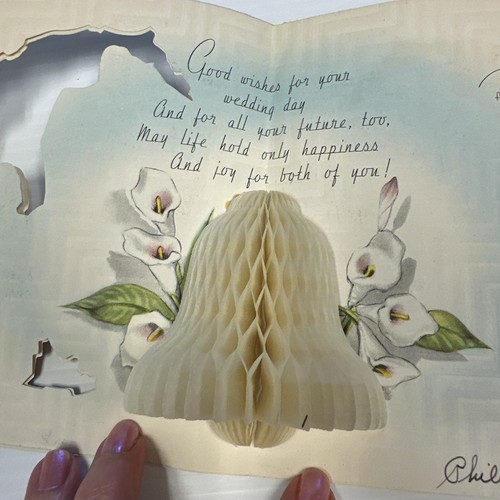 Good wishes for your
wedding day
And for all your future, too,
May life hold only happiness
And joy for both of you!